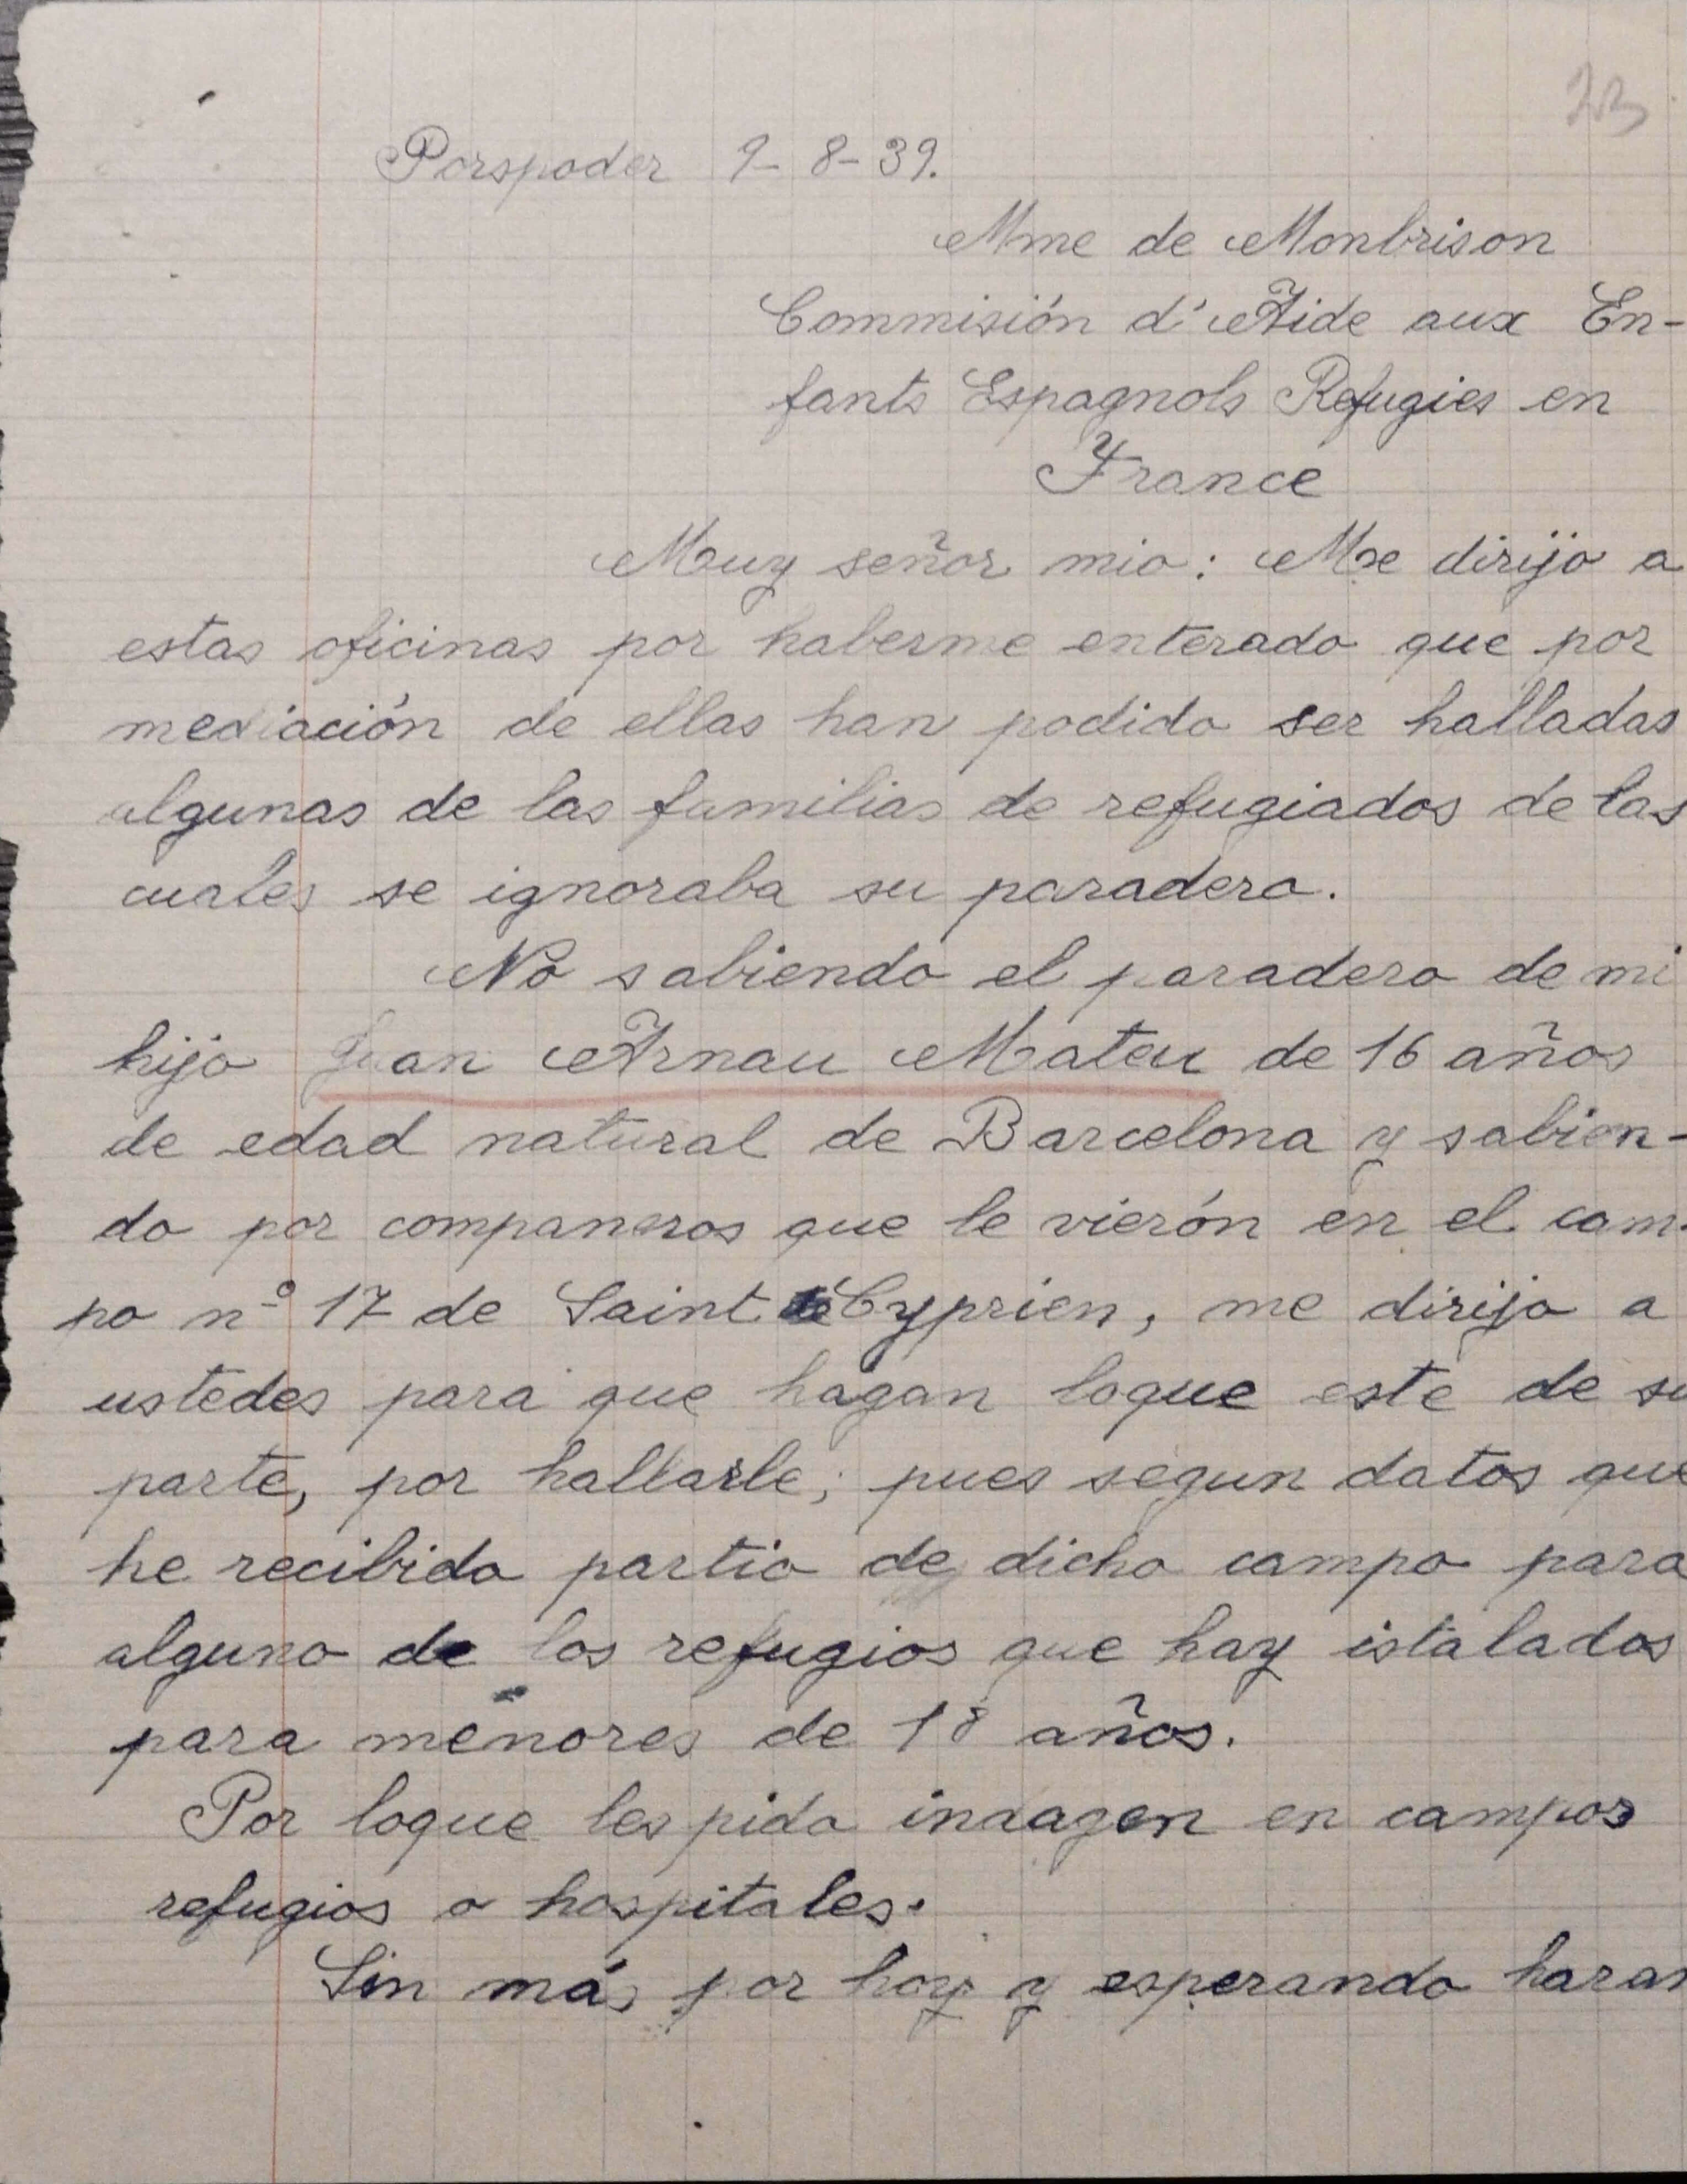 23
Porspoder 9-8-39.
Mme de Monbrison
Commisión d'Aide aux En-
fants Espagnols Refugies en
France
Muy señor mio: Me dirijo a
estas oficinas por haberme enterado que por
mediación de ellas han podido ser halladas
algunas de las familias de refugiados de las
cuales se ignoraba su paradero.
No sabiendo el paradero de mi
hijo Juan Arnau Mateu de 16 años
de edad natural de Barcelona y sabien-
do por companeros que le vierón en el cam-
po nº 17 de Saint Cyprien, me dirijo a
ustedes para que hagan loque este de su
parte, por hallarle; pues segun datos que
he recibido partio de dicho campo para
alguno de los refugios que hay istalados
para menores de 18 años.
Por loque les pido indagen en campos
refugios o hospitales.
Sin más por hoy y esperando haran